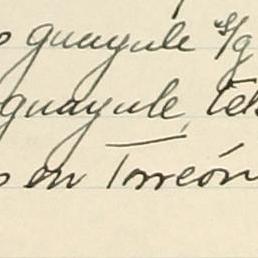 guayule s/g
guayule, tel
en Torreón